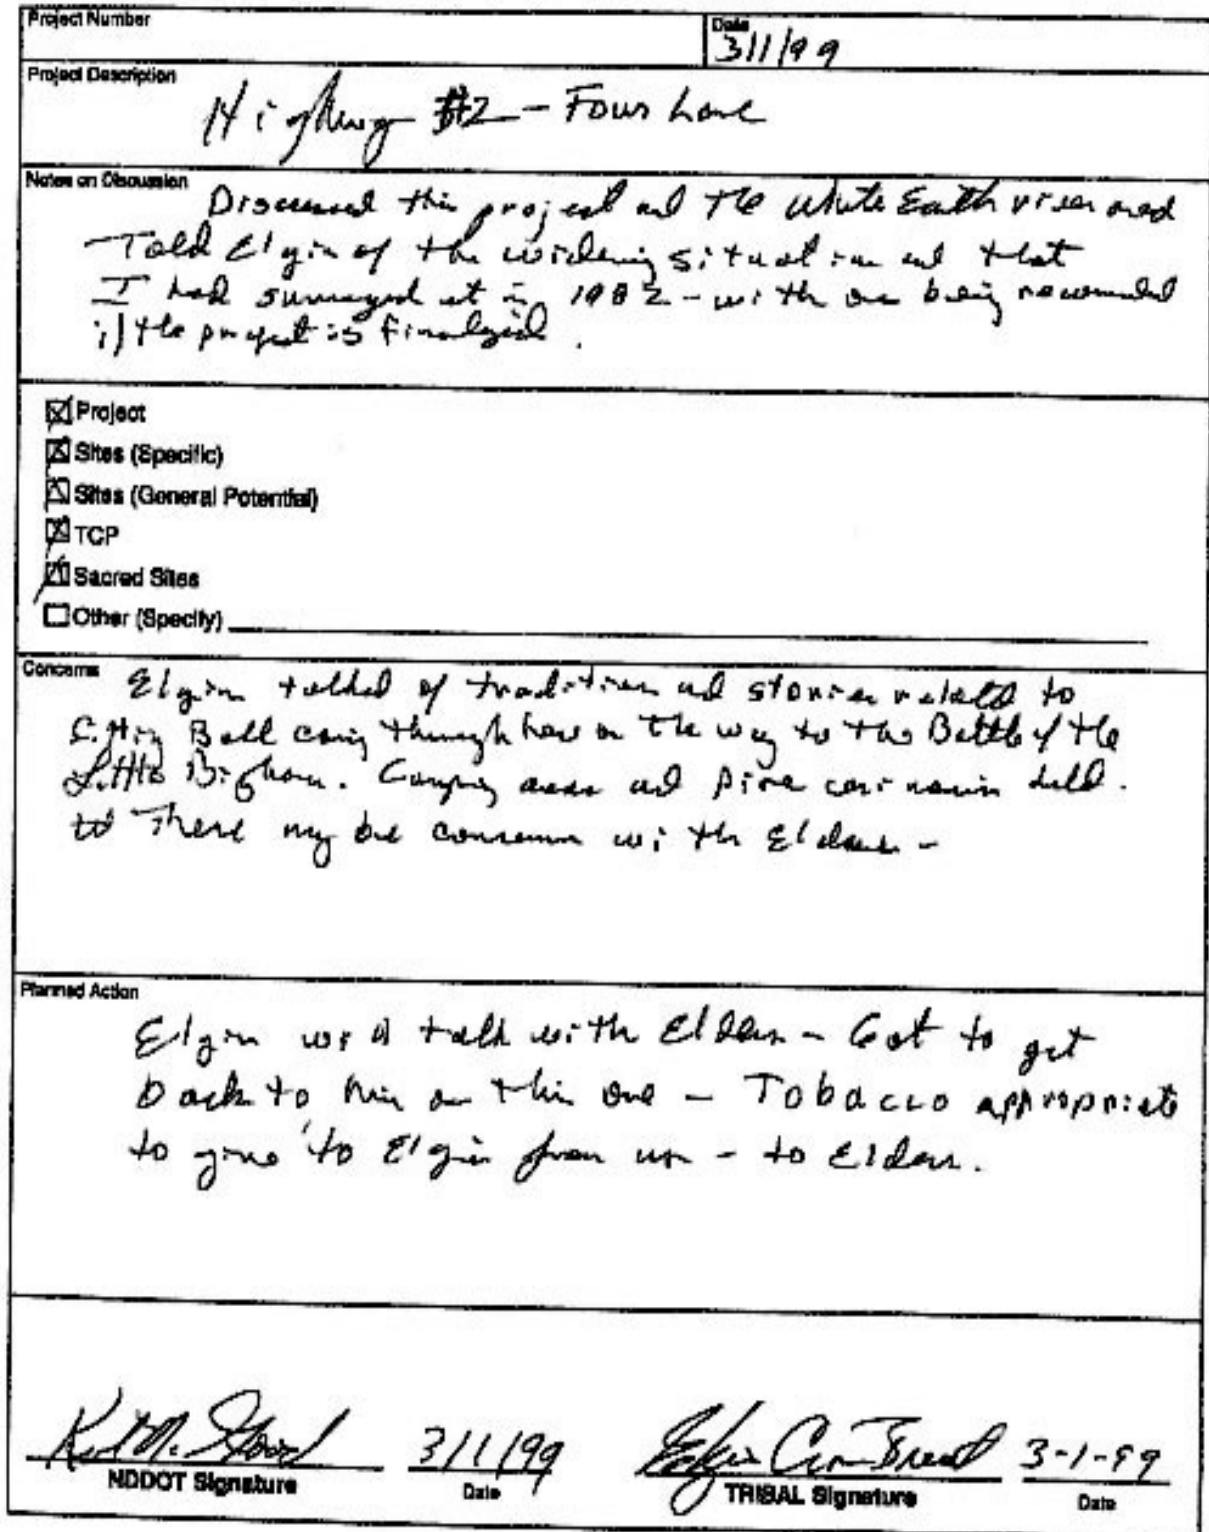 Project Number
Date
3/1/99
Project Description
Highway #2 - Four Lane
Notes on Discussion
Discussed this project and the White Earth river and
Told Elgin of the widening situation and that
I had surveyed it in 1982 - with one being
if the project is finalized.
Project
Sites (Specific)
Sites (General Potential)
TCP
Sacred Sites
Other (Specify)
Concerns
Elgin talked of tradition and stories related to
Sitting Bull coming through here on the way to the Battle of the
Little Bighorn. Camping areas and held.
There may be concerns with Elders -
Planned Action
Elgin will talk with Elders - Got to get
back to him on this one - Tobacco appropriate
to give to Elgin from us - to Elders.
3/1/99
3-1-99
NDDOT Signature
Date
TRIBAL Signature
Date